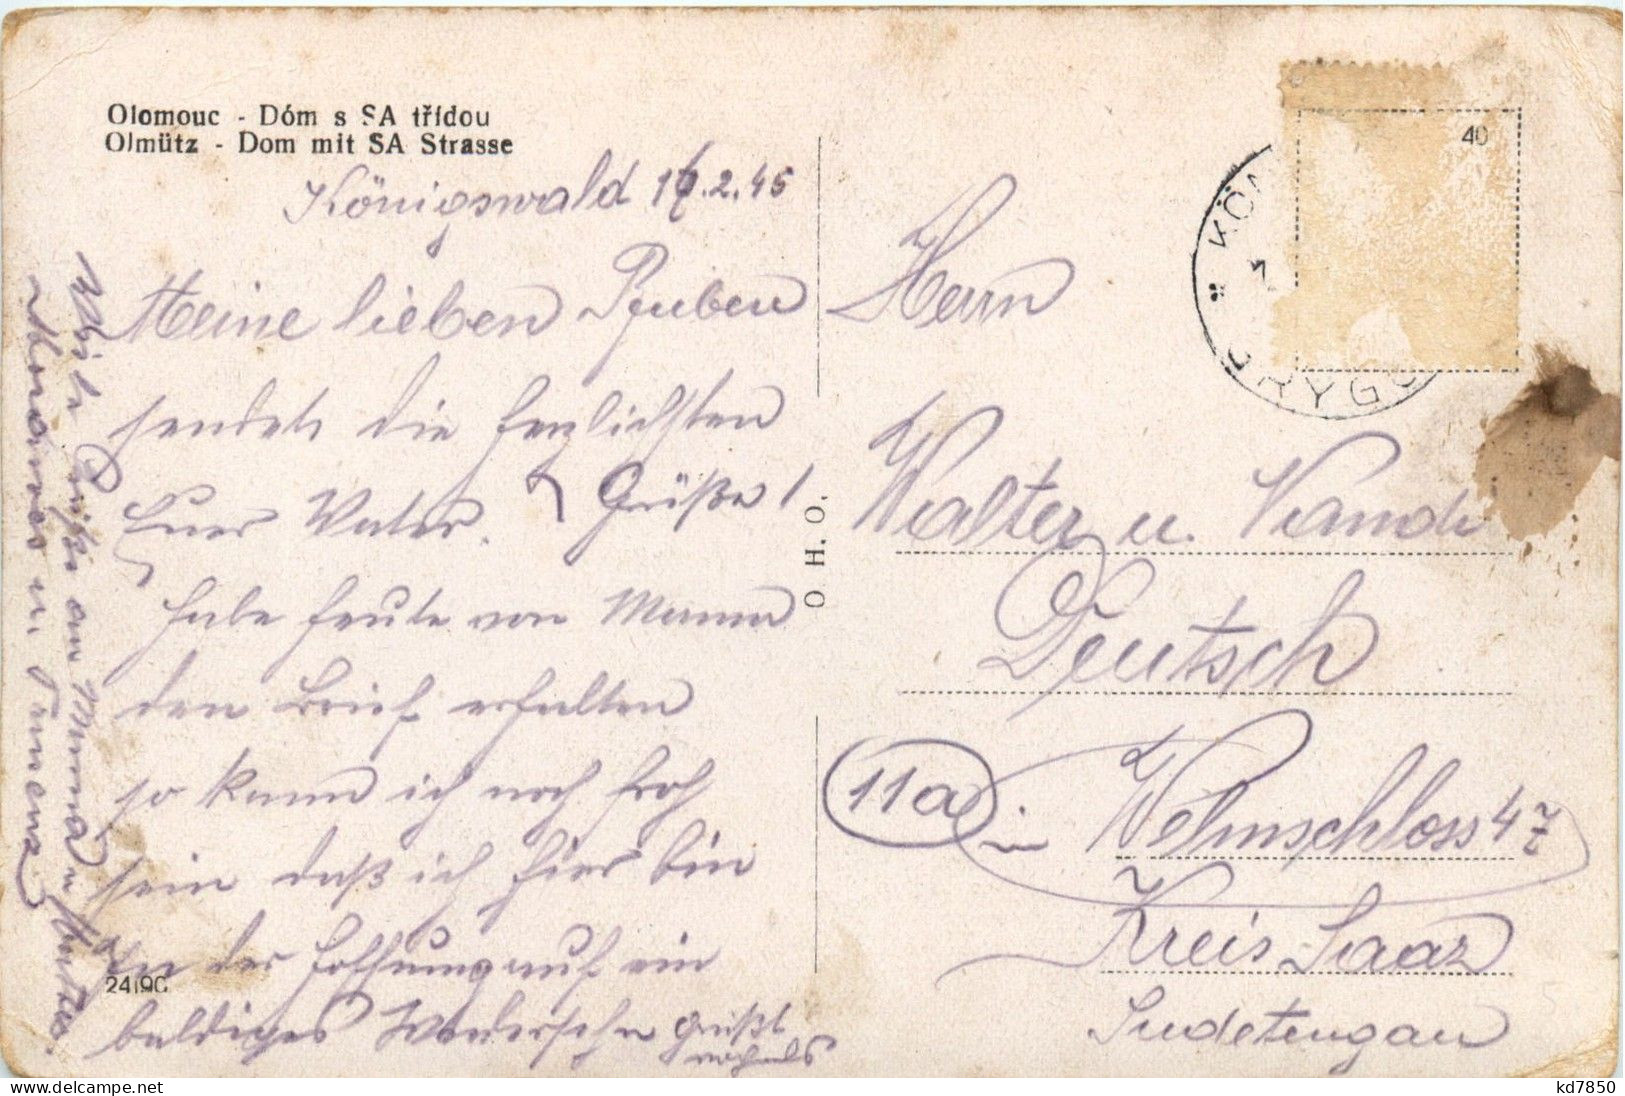 Olomouc - Dóm s SA třídou
Olmütz - Dom mit SA Strasse
Königswald 16.2.45
Meine lieben Buben
sendet die herzlichsten
Euer Vater. Grüße!
habe heute von Mama
den Brief erhalten
so kann ich noch froh
sein daß ich hier bin
In der Hoffnung auf ein
baldiges Wiedersehn grüßt
nochmals
Viele Grüße an Mama u.
u.
24190
O. H. O.
40
KÖN
Herrn
Walter u.
Deutsch
11a
in Welmschloss 47
Kreis Saaz
Sudetengau
kd7850